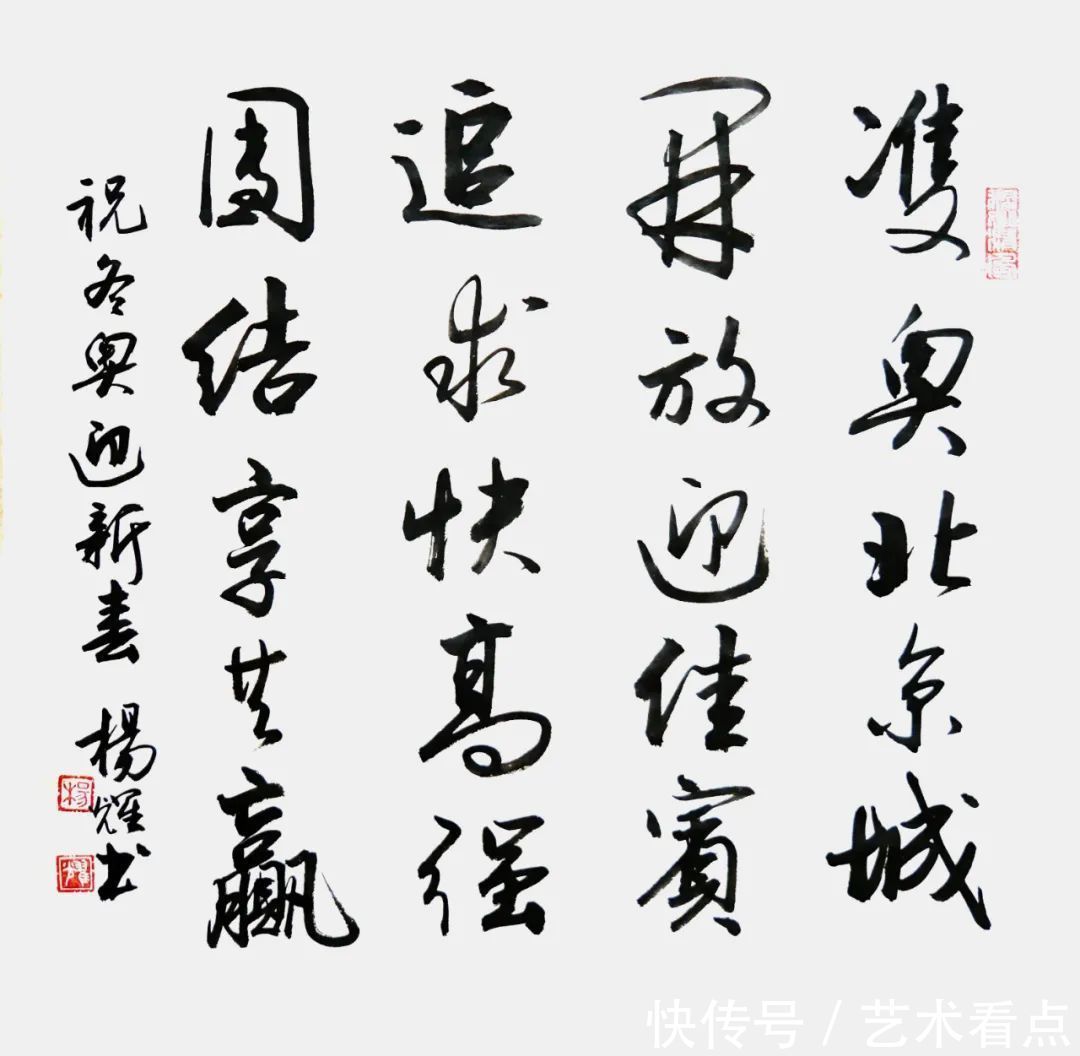 雙奧北京城
開放迎佳賓
追求快高强
團结享共贏
祝冬奥迎新春 楊耀书
快传号 / 艺术看点